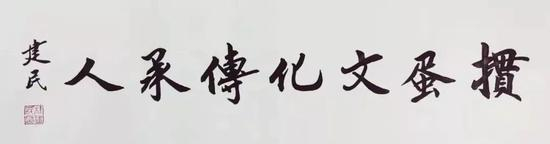 掼蛋文化傳承人
建民